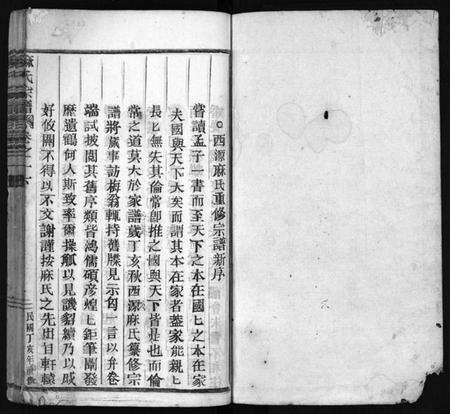 西源麻氏重修宗譜新序
嘗讀孟子一書而至天下之本在國匕之本在家
夫國與天下大矣而謂其本在家者蓋家能親匕
長匕無失其倫常卽推之國與天下皆是也而倫
常之道莫大於家譜歲丁亥秋西源麻氏纂修宗
譜將蕆事訪梅翁輒持舊牒見示匄一言以弁卷
端試披閱其舊序類皆鴻儒碩彥煌匕鉅筆闡發
靡遺鶡何人斯敢率爾操觚以見譏貂續乃以戚
好攸關不得以不文謝謹按麻氏之先出自軒轅
麻氏宗譜
民國丁亥